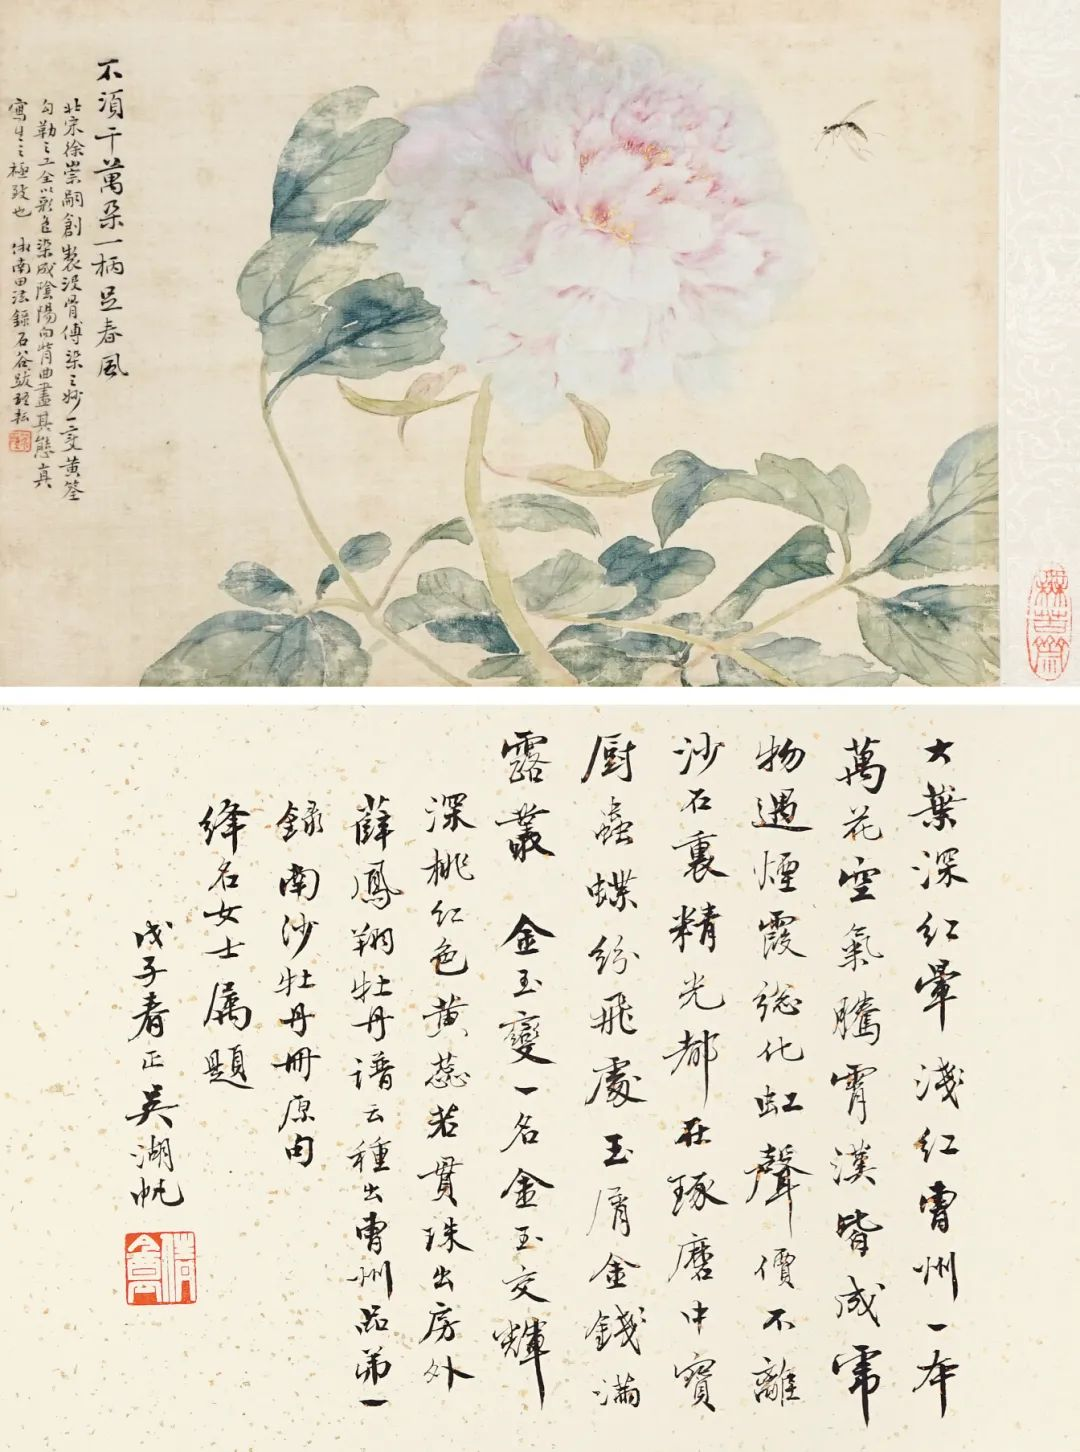 不須千萬朵一柄足春風
北宋徐崇嗣創製沒骨傅染之妙一變黃筌
勾勒之工全以彩色染成陰陽向背曲盡其態真
寫生之極致也 佽南田法錄石谷跋 珵耘
大葉深紅暈淺紅曹州一本
萬花空氣騰霄漢皆成霈
物遇煙霞總化虹聲價不離
沙石裏精光都在琢磨中寶
廚蟲蝶紛飛處玉屑金錢滿
露叢 金玉變一名金玉交輝
深桃紅色黃蕊若貫珠出房外
薛鳳翔牡丹譜云種出曹州品第一
錄南沙牡丹冊原句
絳名女士屬題
戊子春正吳湖帆